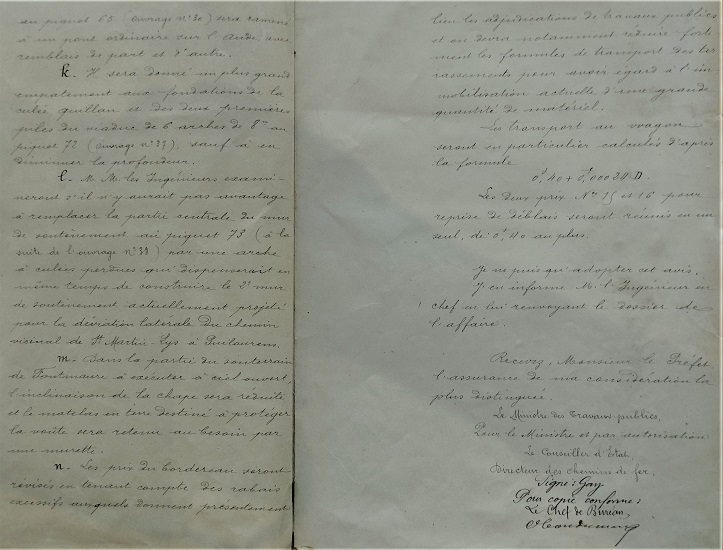 au piquet 65 (ouvrage n° 30) sera ramené
à un pont ordinaire sur l'Aude, avec
remblais de part et d'autre.
k. Il sera donné un plus grand
empatement aux fondations de la
culée Quillan et des deux premières
piles du viaduc de 6 arches de 8m au
piquet 72 (ouvrage n° 37), sauf à en
diminuer la profondeur.
l. M. M. les Ingénieurs exami-
neront s'il n'y aurait pas avantage
à remplacer la partie centrale du mur
de soutènement au piquet 73 (à la
suite de l'ouvrage n° 39) par une arche
à culées perdues qui dispenserait en
même temps de construire le 2e mur
de soutènement actuellement projeté
pour la déviation latérale du chemin
vicinal de St Martin-Lys à Puilaurens.
m. Dans la partie du souterrain
de Fontmaure à exécuter à ciel ouvert,
l'inclinaison de la chape sera réduite
et le matelas en terre destiné à protéger
la voûte sera retenu au besoin par
une murette.
n. Les prix du bordereau seront
révisés en tenant compte des rabais
excessifs auxquels donnent présentement
lieu les adjudications de travaux publics
et on devra notamment réduire forte
ment les formules de transport des ter
rassements pour avoir égard à l'im
mobilisation actuelle d'une grande
quantité de matériel.
Les transport au wagon
seront en particulier calculés d'après
la formule
0f,40 + 0f,00024 D.
Les deux prix Nos 15 et 16 pour
reprise de déblais seront réunis en un
seul, de 0f,40 au plus.
Je ne puis qu'adopter cet avis.
J'en informe M. l'Ingénieur en
chef en lui renvoyant le dossier de
l'affaire.
Recevez, Monsieur le Préfet
l'assurance de ma considération la
plus distinguée.
Le Ministre des Travaux publics,
Pour le Ministre et par autorisation
Le Conseiller d'Etat,
Directeur des chemins de fer,
Signé: Gay
Pour copie conforme:
Le Chef de Bureau,